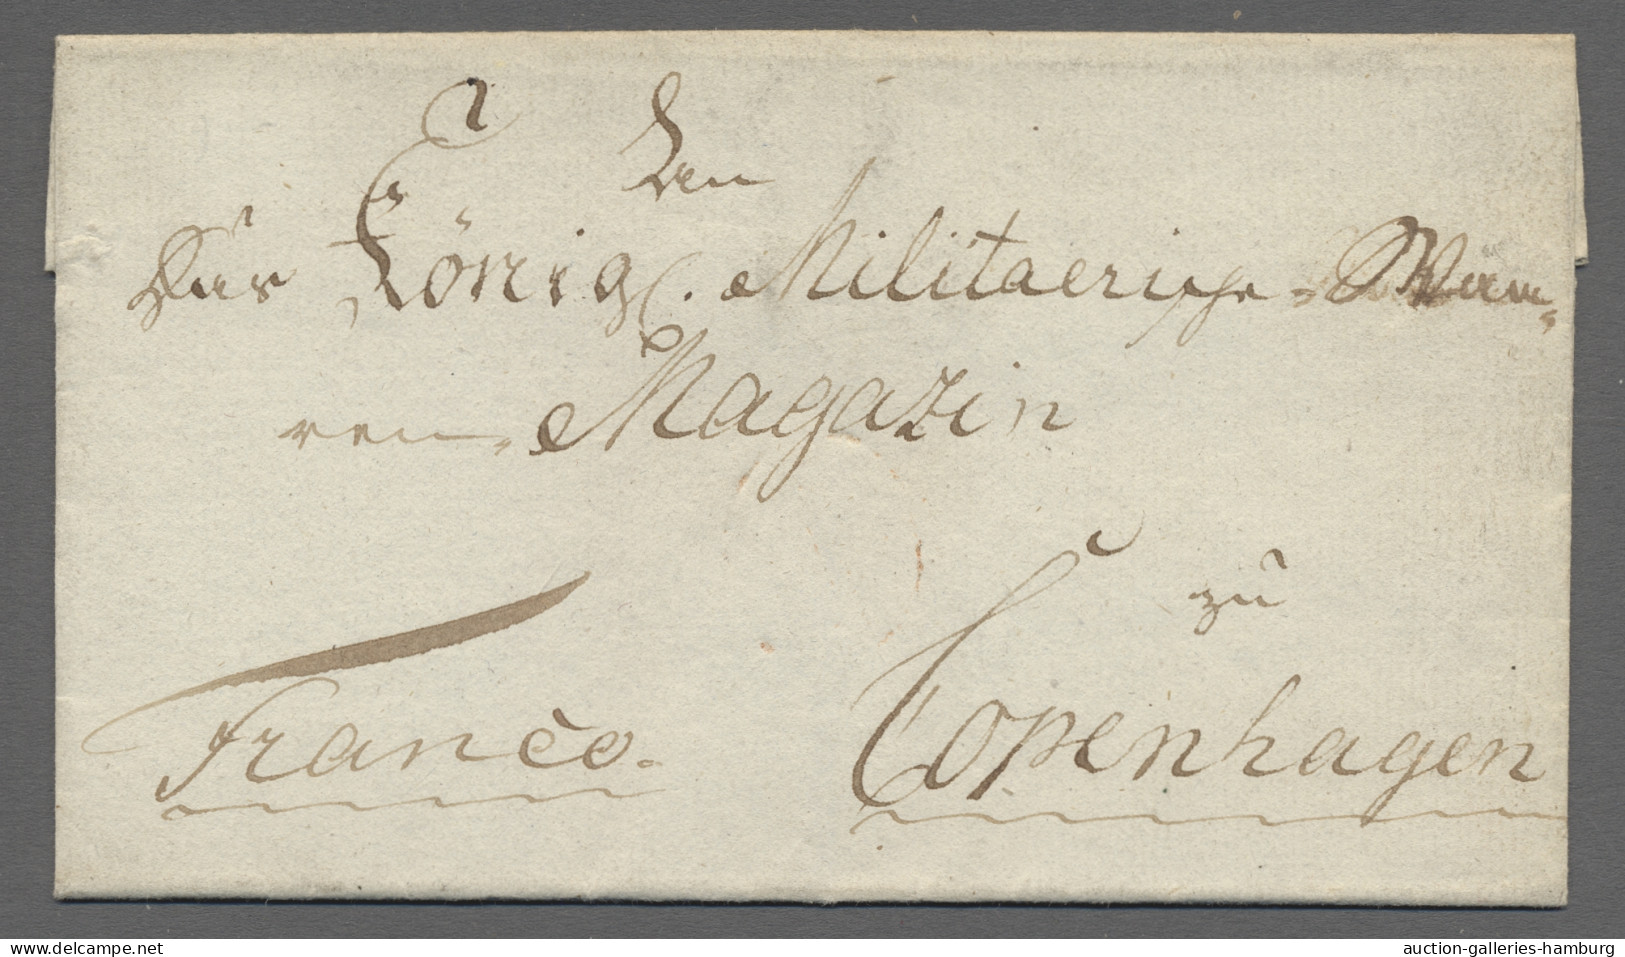 An
Das Königl. Militaerische-Waa-
ren-Magazin
zu
Franco.
Copenhagen
www.delcampe.net
auction-galleries-hamburg